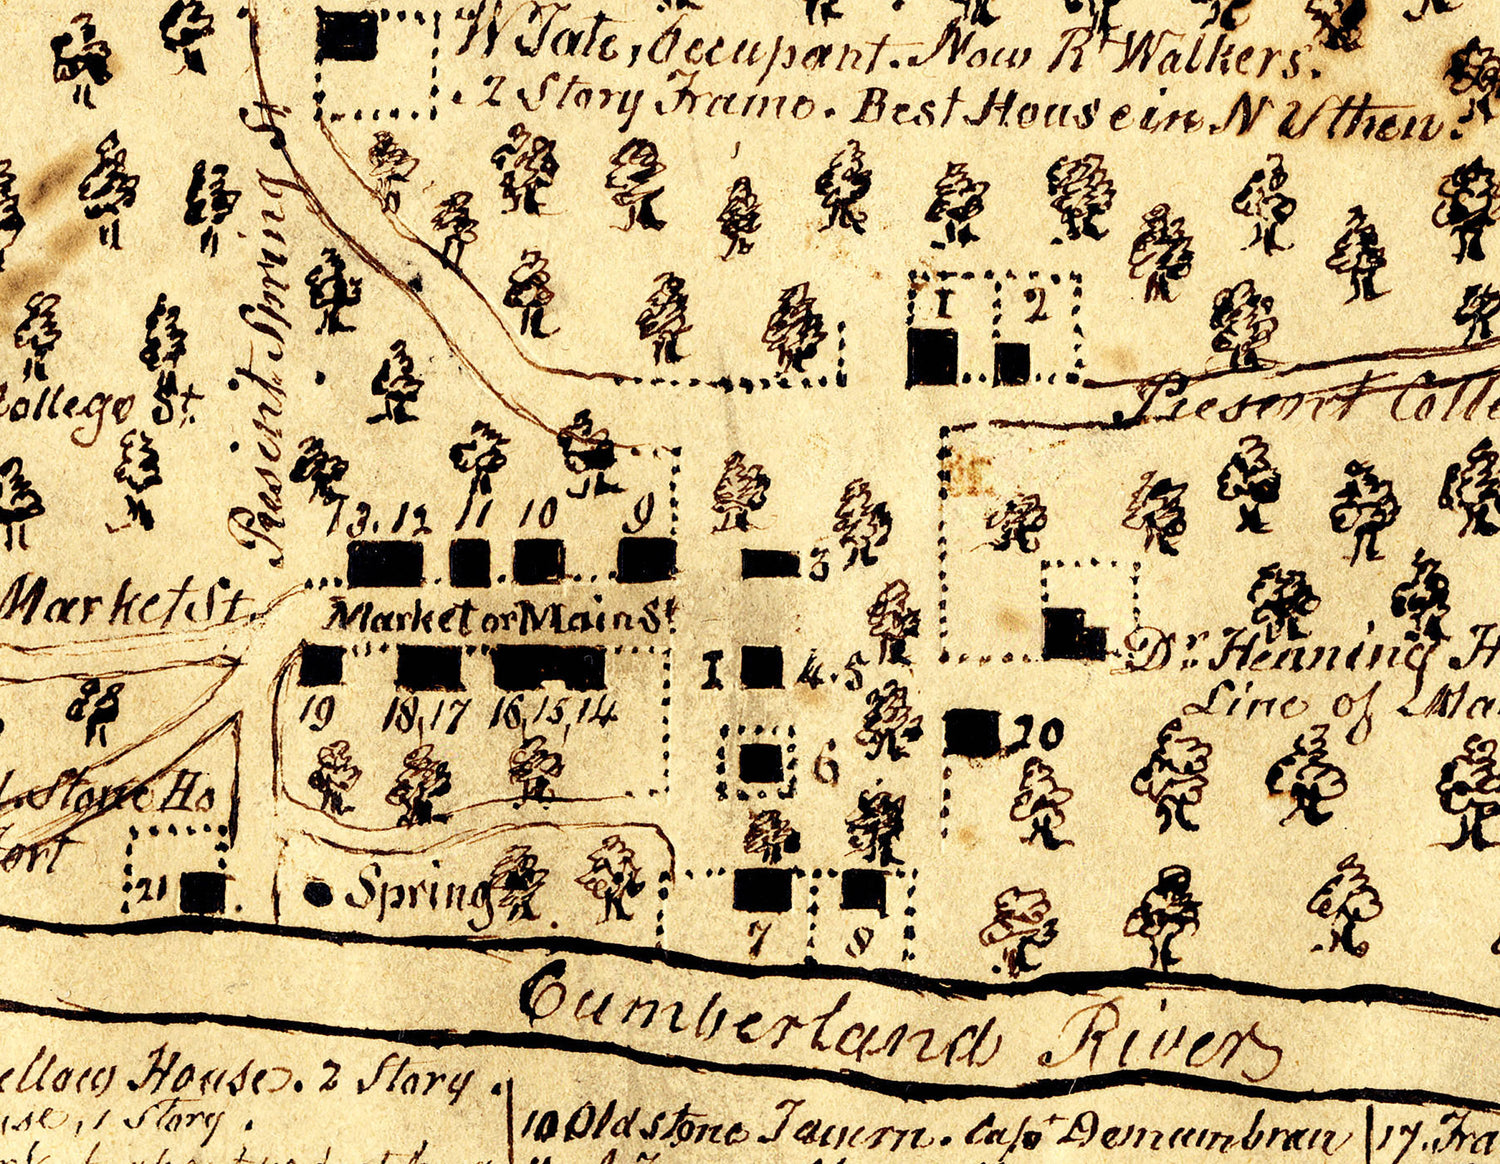 W Tate, Occupant. Now Rt Walkers.
2 Story Frame. Best House in N V then.
Present Spring St
1 2
College St.
Present Colle
13. 12 11 10 9
3
Market St.
Market or Main St
Dr. Henning H
I 4. 5
19 18, 17 16, 15, 14
Line of Ma
20
6
Stone Ho
Fort
21
Spring
7 8
Cumberland River
ellow House. 2 Story.
use, 1 Story.
10 Old stone Tavern. Capt Demumbrau
17. Fra